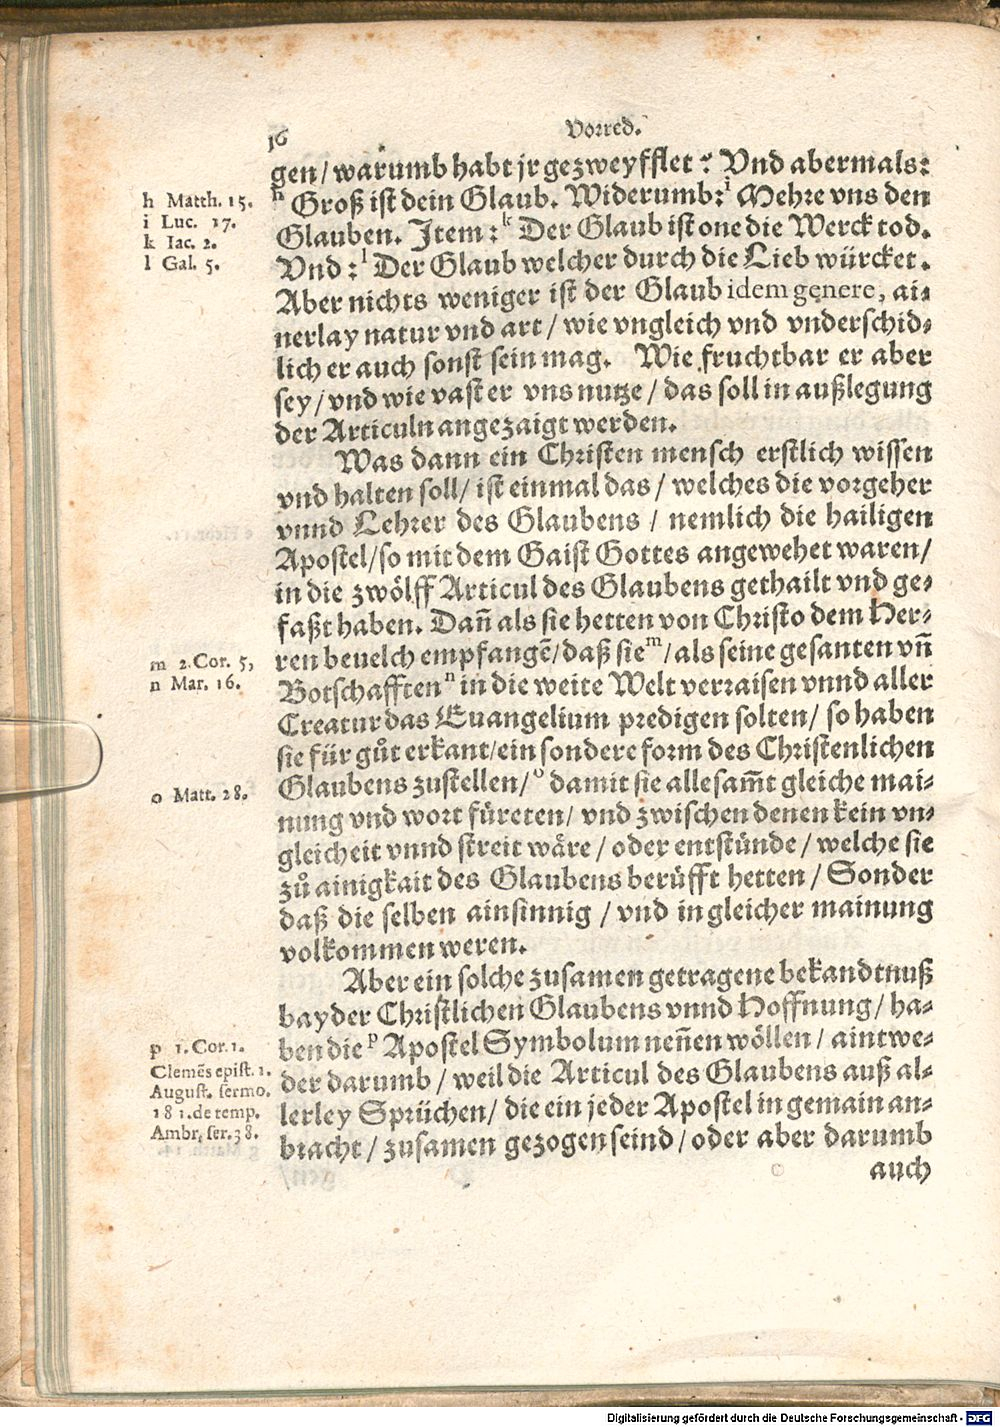 16
Vorred.
gen/ warumb habt jr gezweyfflet? Vnd abermals:
h Groß ist dein Glaub. Widerumb: i Mehre vns den
Glauben. Item: k Der Glaub ist one die Werck tod.
Vnd: l Der Glaub welcher durch die Lieb würcket.
Aber nichts weniger ist der Glaub idem genere, ai⸗
nerlay natur vnd art/ wie vngleich vnd vnderschid⸗
lich er auch sonst sein mag. Wie fruchtbar er aber
sey/ vnd wie vast er vns nutze/ das soll in außlegung
der Articuln angezaigt werden.
Was dann ein Christen mensch erstlich wissen
vnd halten soll/ ist einmal das/ welches die vorgeher
vnnd Lehrer des Glaubens/ nemlich die hailigen
Apostel/ so mit dem Gaist Gottes angewehet waren/
in die zwölff Articul des Glaubens gethailt vnd ge⸗
faßt haben. Dañ als sie hetten von Christo dem Her⸗
ren beuelch empfangẽ/ daß sie m/ als seine gesanten vñ
Botschafften n in die weite Welt verraisen vnnd aller
Creatur das Euangelium predigen solten/ so haben
sie für gůt erkant/ ein sondere form des Christenlichen
Glaubens zustellen/ o damit sie alle sam̃t gleiche mai⸗
nung vnd wort füreten/ vnd zwischen denen kein vn⸗
gleicheit vnnd streit wäre/ oder entstünde/ welche sie
zů ainigkait des Glaubens berüfft hetten/ Sonder
daß die selben ainsinnig/ vnd in gleicher mainung
volkommen weren.
Aber ein solche zusamen getragene bekandtnuß
bayder Christlichen Glaubens vnnd Hoffnung/ ha⸗
ben die p Apostel Symbolum neñen wöllen/ aintwe⸗
der darumb/ weil die Articul des Glaubens auß al⸗
lerley Sprüchen/ die ein jeder Apostel in gemain an⸗
bracht/ zusamen gezogen seind/ oder aber darumb
auch
h Matth. 15.
i Luc. 17.
k Iac. 2.
l Gal. 5.
m 2. Cor. 5,
n Mar. 16.
o Matt. 28.
p 1. Cor. 1.
Clemẽs epist. 1.
August. sermo.
181. de temp.
Ambr. ser. 38.
Digitalisierung gefördert durch die Deutsche Forschungsgemeinschaft - DFG